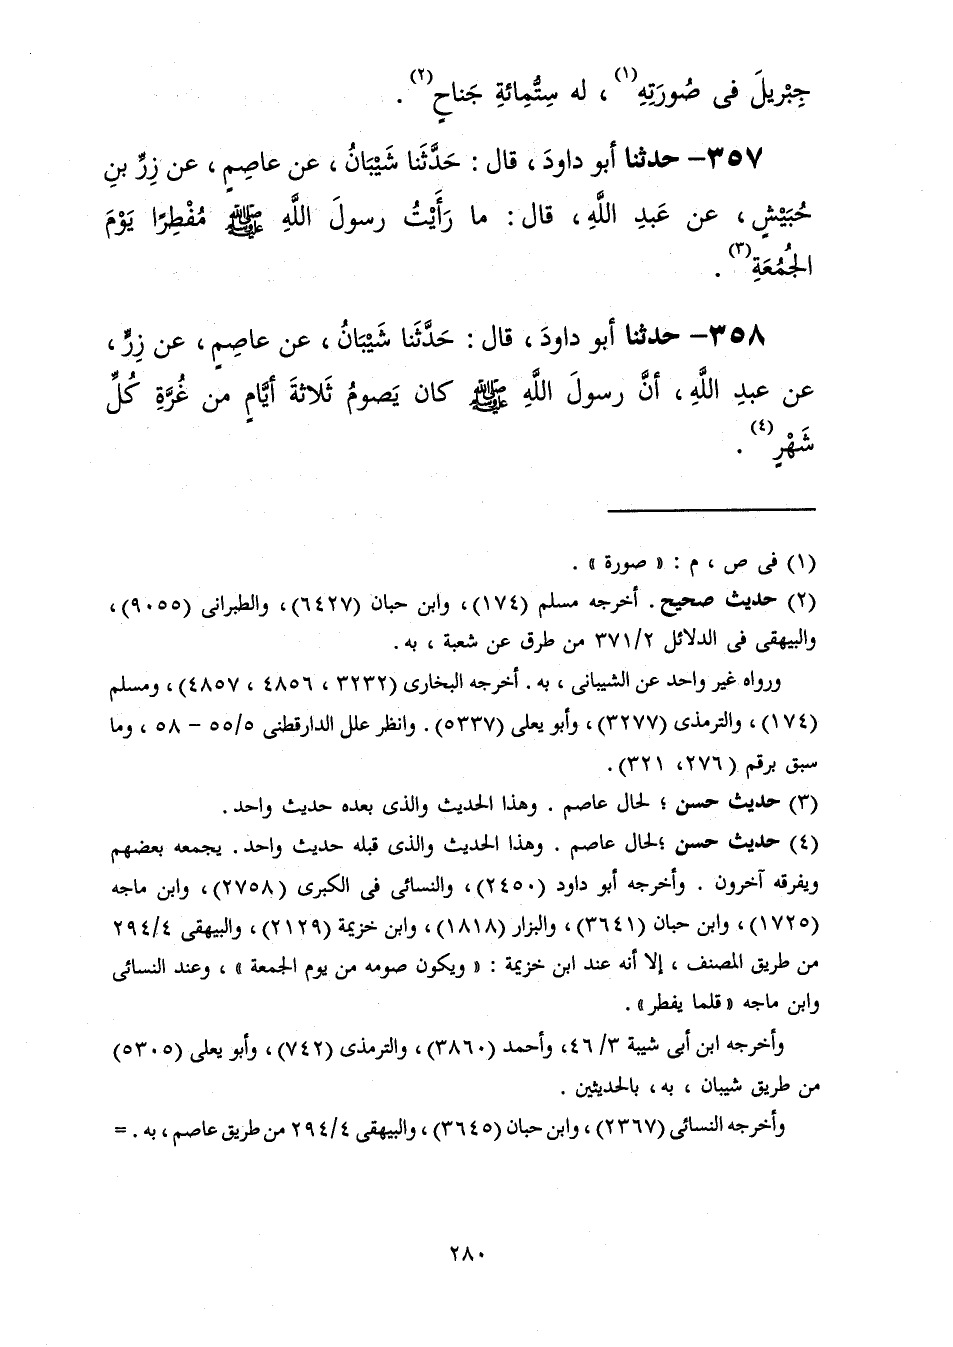 جِبْريلَ فى صُورَتِهِ(١) ، له سِتُّمِائةِ جَناحٍ(٢) .
٣٥٧- حدثنا أبو داودَ ، قال : حَدَّثَنا شَيْبَانُ ، عن عاصِمٍ ، عن زِرِّ بنِ
حُبَيْشٍ ، عن عَبدِ اللَّهِ ، قال : ما رَأَيْتُ رسولَ اللَّهِ ﷺ مُفْطِرًا يَوْمَ
الجُمُعَةِ(٣) .
٣٥٨- حدثنا أبو داودَ ، قال : حَدَّثَنا شَيْبَانُ ، عن عاصِمٍ ، عن زِرٍّ ،
عن عبدِ اللَّهِ ، أنَّ رسولَ اللَّهِ ﷺ كان يَصومُ ثَلاثةَ أيَّامٍ من غُرَّةِ كُلِّ
شَهْرٍ(٤) .
(١) فى ص ، م : « صورة » .
(٢) حديث صحيح . أخرجه مسلم (١٧٤) ، وابن حبان (٦٤٢٧) ، والطبرانى (٩٠٥٥) ،
والبيهقى فى الدلائل ٣٧١/٢ من طرق عن شعبة ، به .
ورواه غير واحد عن الشيبانى ، به . أخرجه البخارى (٣٢٣٢ ، ٤٨٥٦ ، ٤٨٥٧) ، ومسلم
(١٧٤) ، والترمذى (٣٢٧٧) ، وأبو يعلى (٥٣٣٧) . وانظر علل الدارقطنى ٥٥/٥ - ٥٨ ، وما
سبق برقم (٢٧٦، ٣٢١) .
(٣) حديث حسن ؛ لحال عاصم . وهذا الحديث والذى بعده حديث واحد .
(٤) حديث حسن ؛لحال عاصم . وهذا الحديث والذى قبله حديث واحد . يجمعه بعضهم
ويفرقه آخرون . وأخرجه أبو داود (٢٤٥٠) ، والنسائى فى الكبرى (٢٧٥٨) ، وابن ماجه
(١٧٢٥) ، وابن حبان (٣٦٤١) ، والبزار (١٨١٨) ، وابن خزيمة (٢١٢٩) ، والبيهقى ٢٩٤/٤
من طريق المصنف ، إلا أنه عند ابن خزيمة : « ويكون صومه من يوم الجمعة » ، وعند النسائى
وابن ماجه « قلما يفطر » .
وأخرجه ابن أبى شيبة ٣/ ٤٦، وأحمد (٣٨٦٠) ، والترمذى (٧٤٢) ، وأبو يعلى (٥٣٠٥)
من طريق شيبان ، به ، بالحديثين .
وأخرجه النسائى (٢٣٦٧) ، وابن حبان (٣٦٤٥) ، والبيهقى ٢٩٤/٤ من طريق عاصم ، به . =
٢٨٠